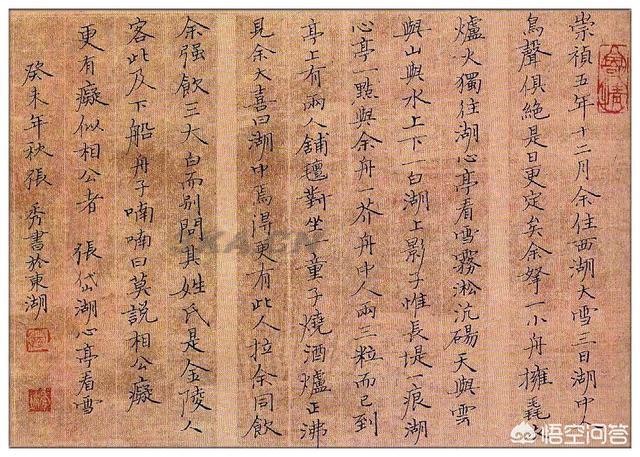 崇禎五年十二月余住西湖大雪三日湖中人
鳥聲俱絕是日更定矣余拏一小舟擁毳
爐火獨往湖心亭看雪霧淞沆碭天與雲
與山與水上下一白湖上影子惟長堤一痕湖
心亭一點與余舟一芥舟中人兩三粒而已到
亭上有兩人鋪氈對坐一童子燒酒爐正沸
見余大喜曰湖中焉得更有此人拉余同飲
余強飲三大白而別問其姓氏是金陵人
客此及下船舟子喃喃曰莫說相公癡
更有癡似相公者 張岱湖心亭看雪
癸未年秋張秀書於東湖
悟空问答